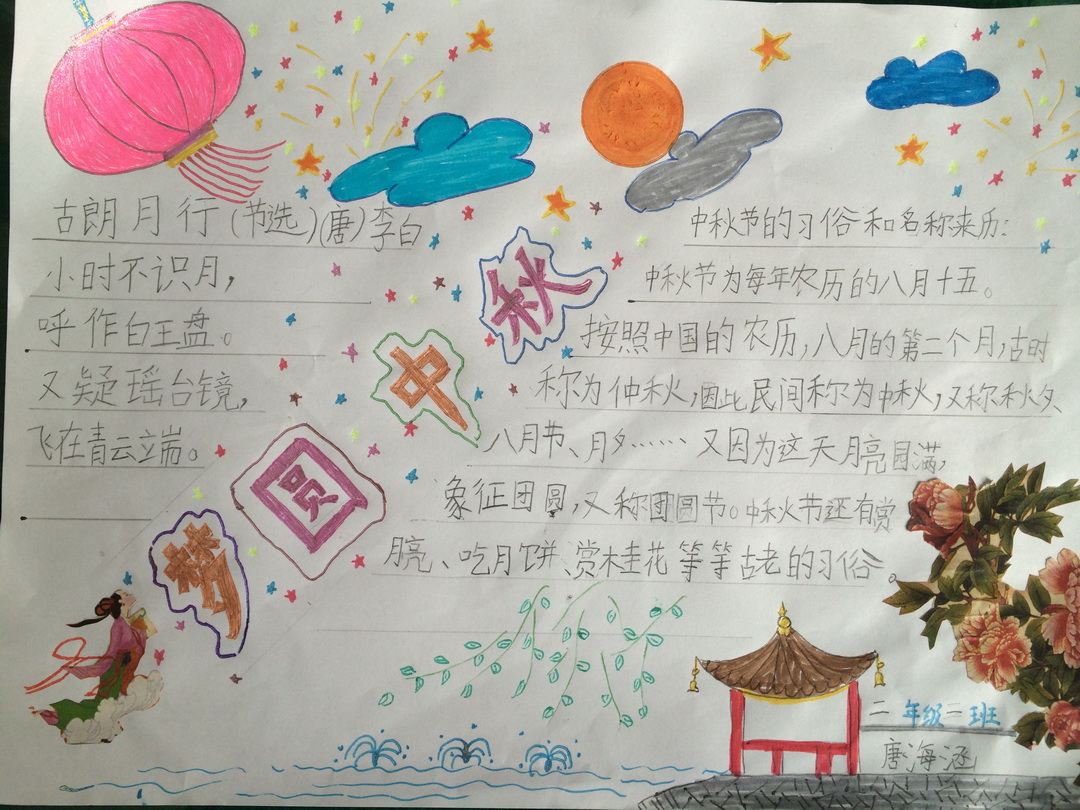 古朗月行(节选)(唐)李白
小时不识月,
呼作白玉盘。
又疑瑶台镜,
飞在青云端。
梦圆中秋
中秋节的习俗和名称来历:
中秋节为每年农历的八月十五。
按照中国的农历,八月的第二个月,古时
称为仲秋,因此民间称为中秋,又称秋夕、
八月节、月夕……又因为这天月亮圆满,
象征团圆,又称团圆节。中秋节还有赏
月亮、吃月饼、赏桂花等等古老的习俗。
二年级二班
唐海涵